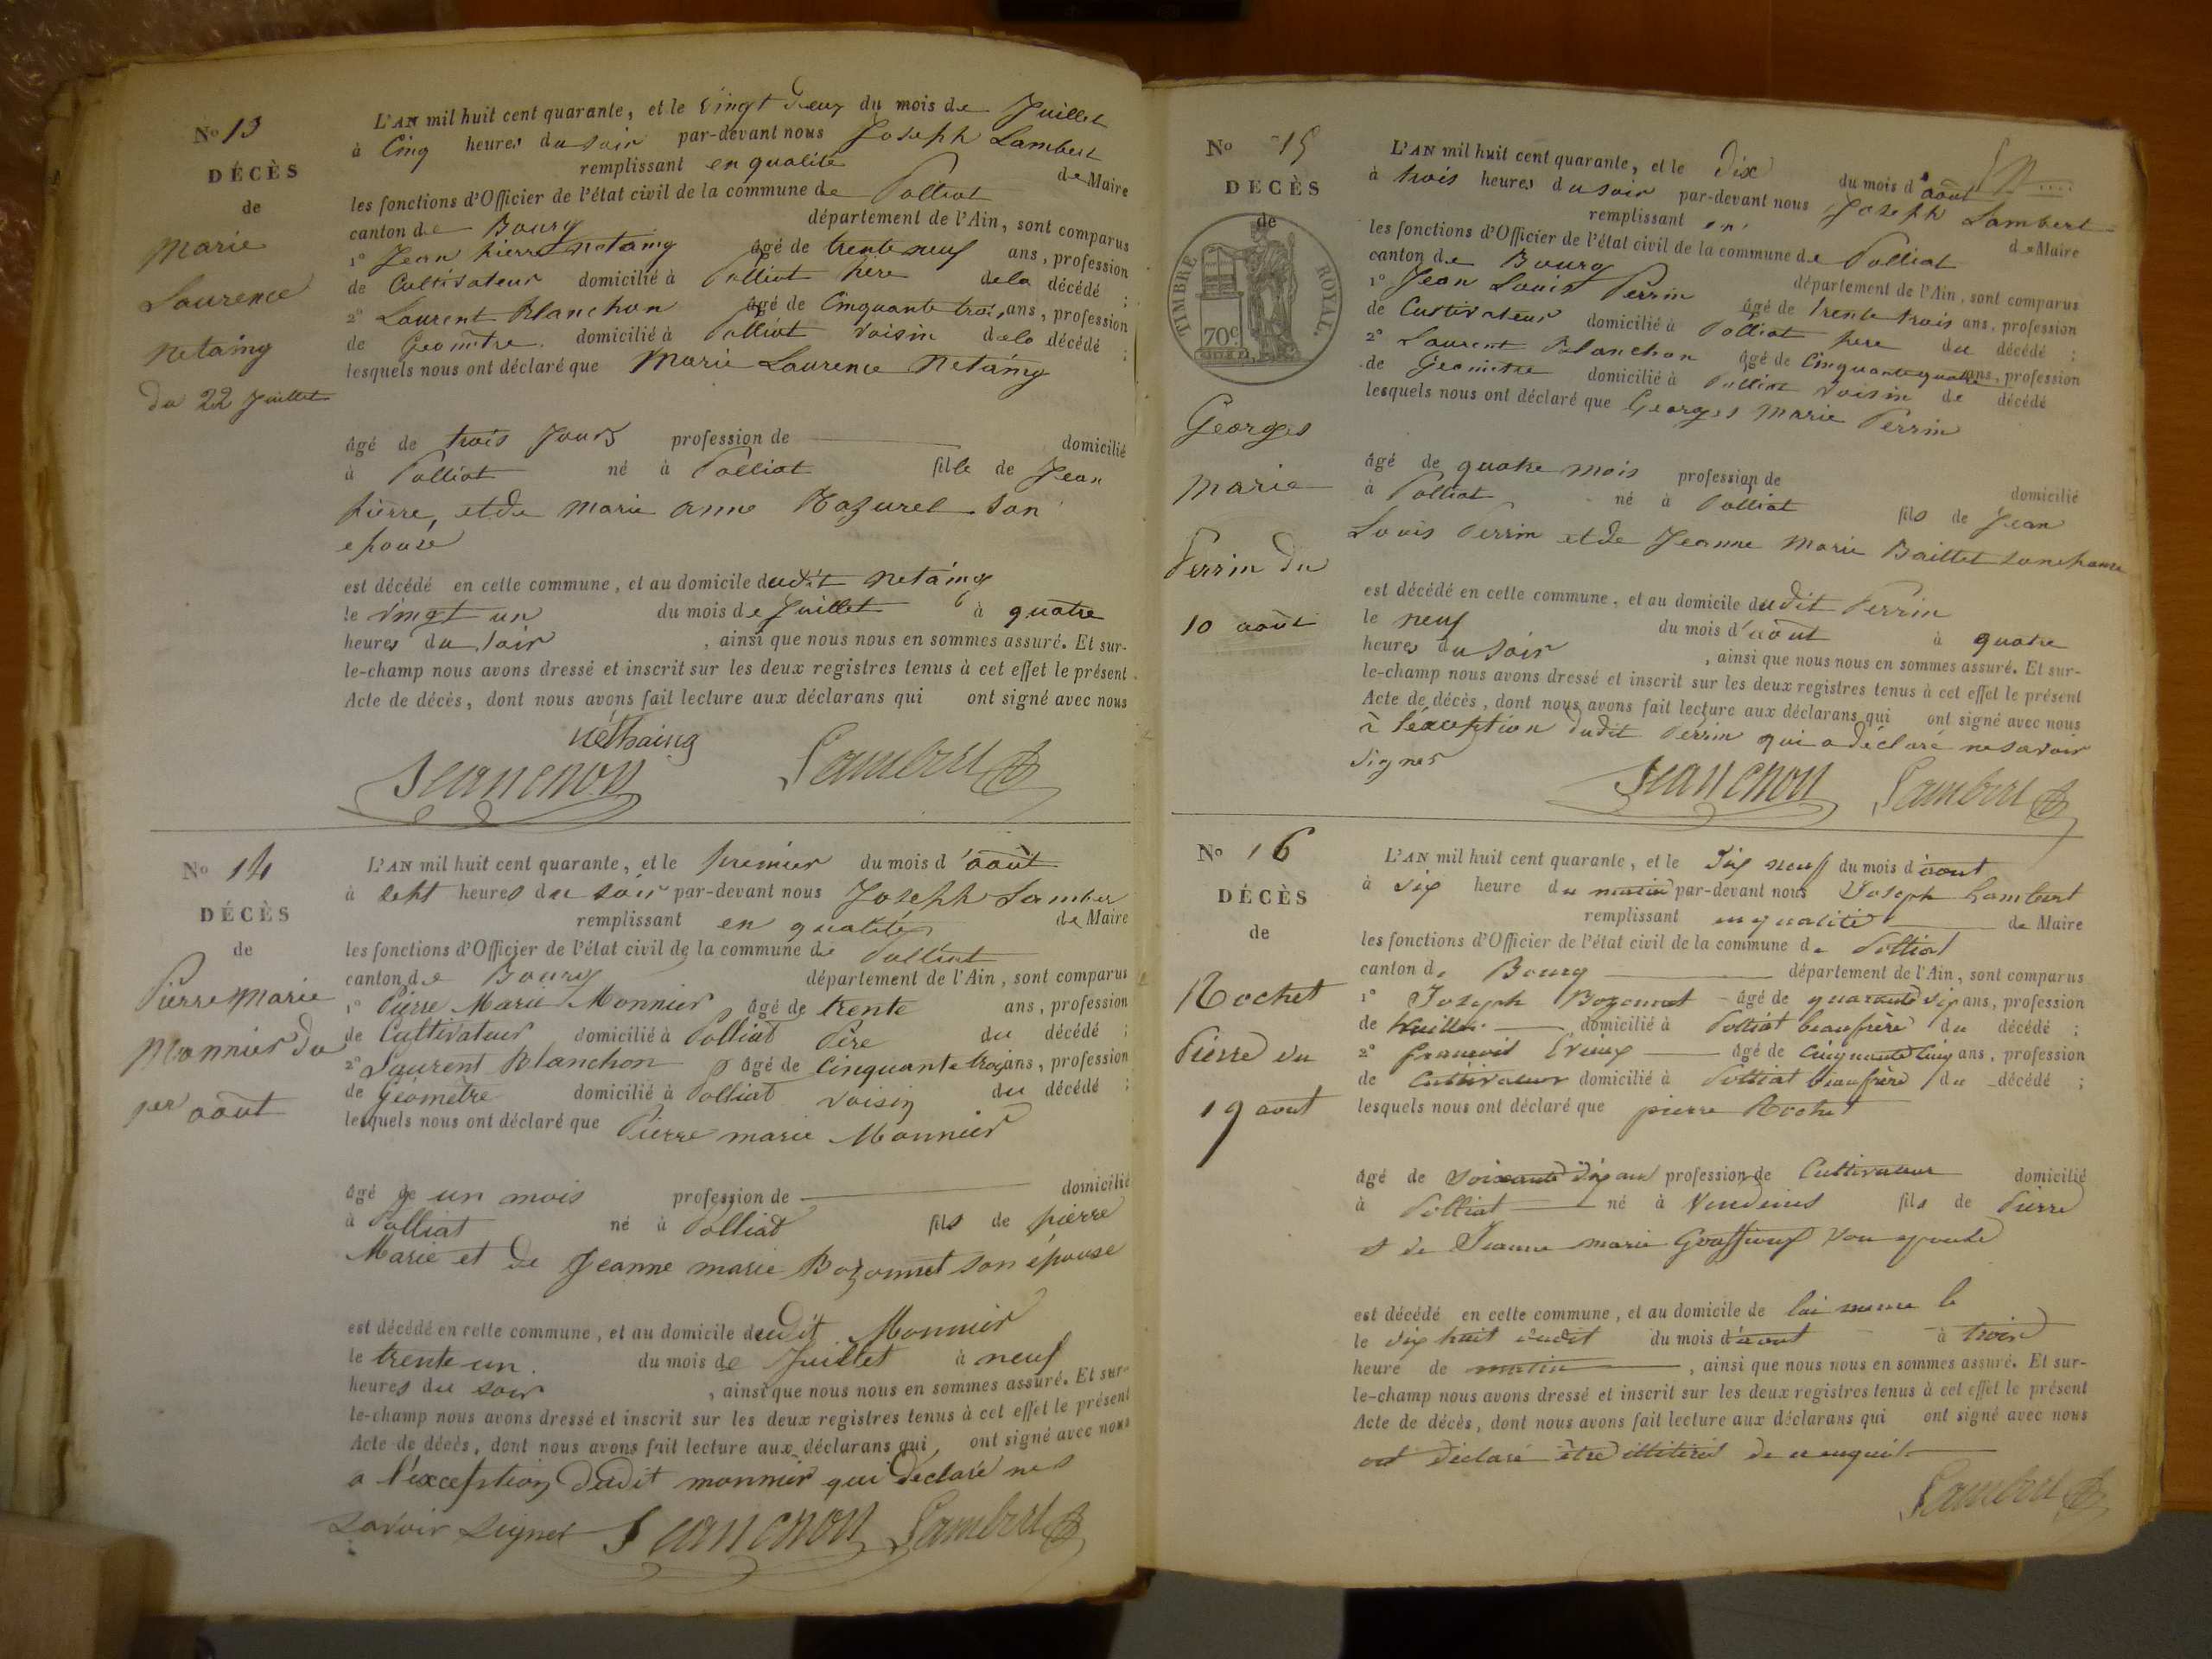 No 13
DÉCÈS
de
Marie
Laurence
Netaing
du 22 Juillet
L'AN mil huit cent quarante, et le vingt deux du mois de Juillet
à Cinq heures du soir par-devant nous Joseph Lambert
remplissant en qualité de Maire
les fonctions d'Officier de l'état civil de la commune de Polliat
canton de Bourg département de l'Ain, sont comparus
1° Jean pierre Netaing âgé de trente neuf ans, profession
de Cultivateur domicilié à Polliat père de la décédé ;
2° Laurent Blanchon âgé de Cinquante trois ans, profession
de Geomètre domicilié à Polliat voisin de la décédé ;
lesquels nous ont déclaré que Marie Laurence Netaing
âgé de trois Jours profession de domicilié
à Polliat né à Polliat fille de Jean
pierre, et de marie anne Razurel son
epouse
est décédé en cette commune, et au domicile dudit Netaing
le vingt un du mois de Juillet à quatre
heures du soir , ainsi que nous nous en sommes assuré. Et sur-
le-champ nous avons dressé et inscrit sur les deux registres tenus à cet effet le présent
Acte de décès, dont nous avons fait lecture aux déclarans qui ont signé avec nous
néthaing
Lambert
No 14
DÉCÈS
de
Pierre Marie
Monnier du
1er août
L'AN mil huit cent quarante, et le premier du mois d'août
à sept heures du soir par-devant nous Joseph Lamber
remplissant en qualité de Maire
les fonctions d'Officier de l'état civil de la commune de Polliat
canton de Bourg département de l'Ain, sont comparus
1° Pierre Marie Monnier âgé de trente ans, profession
de Cultivateur domicilié à Polliat Père du décédé ;
2° Laurent Blanchon âgé de Cinquante trois ans, profession
de Géomètre domicilié à Polliat voisin du décédé ;
lesquels nous ont déclaré que Pierre marie Monnier
âgé de un mois profession de domicilié
à Polliat né à Polliat fils de pierre
Marie et de Jeanne marie Bozonnet son épouse
est décédé en cette commune, et au domicile dudit Monnier
le trente un du mois de Juillet à neuf
heures du soir , ainsi que nous nous en sommes assuré. Et sur-
le-champ nous avons dressé et inscrit sur les deux registres tenus à cet effet le présent
Acte de décès, dont nous avons fait lecture aux déclarans qui ont signé avec nous
a l'exception dudit monnier qui déclaré ne
savoir signer
Lambert
No 15
DÉCÈS
de
TIMBRE ROYAL.
70c
Georges
Marie
Perrin du
10 août
L'AN mil huit cent quarante, et le dix du mois d'août
à trois heures du soir par-devant nous Joseph Lambert
remplissant en de Maire
les fonctions d'Officier de l'état civil de la commune de Polliat
canton de Bourg département de l'Ain, sont comparus
1° Jean Louis Perrin âgé de trente trois ans, profession
de Cultivateur domicilié à Polliat père du décédé ;
2° Laurent Blanchon âgé de Cinquante quatre ans, profession
de Geomètre domicilié à Polliat voisin de décédé
lesquels nous ont déclaré que Georges Marie Perrin
âgé de quatre mois profession de domicilié
à Polliat né à Polliat fils de Jean
Louis Perrin et de Jeanne Marie Baillet
est décédé en cette commune, et au domicile dudit Perrin
le neuf du mois d'août à quatre
heures du soir , ainsi que nous nous en sommes assuré. Et sur-
le-champ nous avons dressé et inscrit sur les deux registres tenus à cet effet le présent
Acte de décès, dont nous avons fait lecture aux déclarans qui ont signé avec nous
à l'éxception dudit Perrin qui a déclaré ne savoir
signer
Lambert
No 16
DÉCÈS
de
Rochet
Pierre du
19 aout
L'AN mil huit cent quarante, et le dix neuf du mois d'aout
à dix heure du matin par-devant nous Joseph Lambert
remplissant en qualité de Maire
les fonctions d'Officier de l'état civil de la commune de Polliat
canton de Bourg département de l'Ain, sont comparus
1° Joseph Bozonnet âgé de quarante dix ans, profession
de domicilié à Polliat beaufrère du décédé ;
2° francois âgé de Cinquante Cinq ans, profession
de Cultivateur domicilié à Polliat beaufrère du décédé ;
lesquels nous ont déclaré que pierre Rochet
âgé de soixante dix ans profession de Cultivateur domicilié
à Polliat né à fils de Pierre
et de Jeanne marie son epouse
est décédé en cette commune, et au domicile de lui meme le
le dix huit dudit du mois d'aout à trois
heure de matin , ainsi que nous nous en sommes assuré. Et sur-
le-champ nous avons dressé et inscrit sur les deux registres tenus à cet effet le présent
Acte de décès, dont nous avons fait lecture aux déclarans qui ont signé avec nous
ont déclaré être illitérés de ce enquis
Lambert